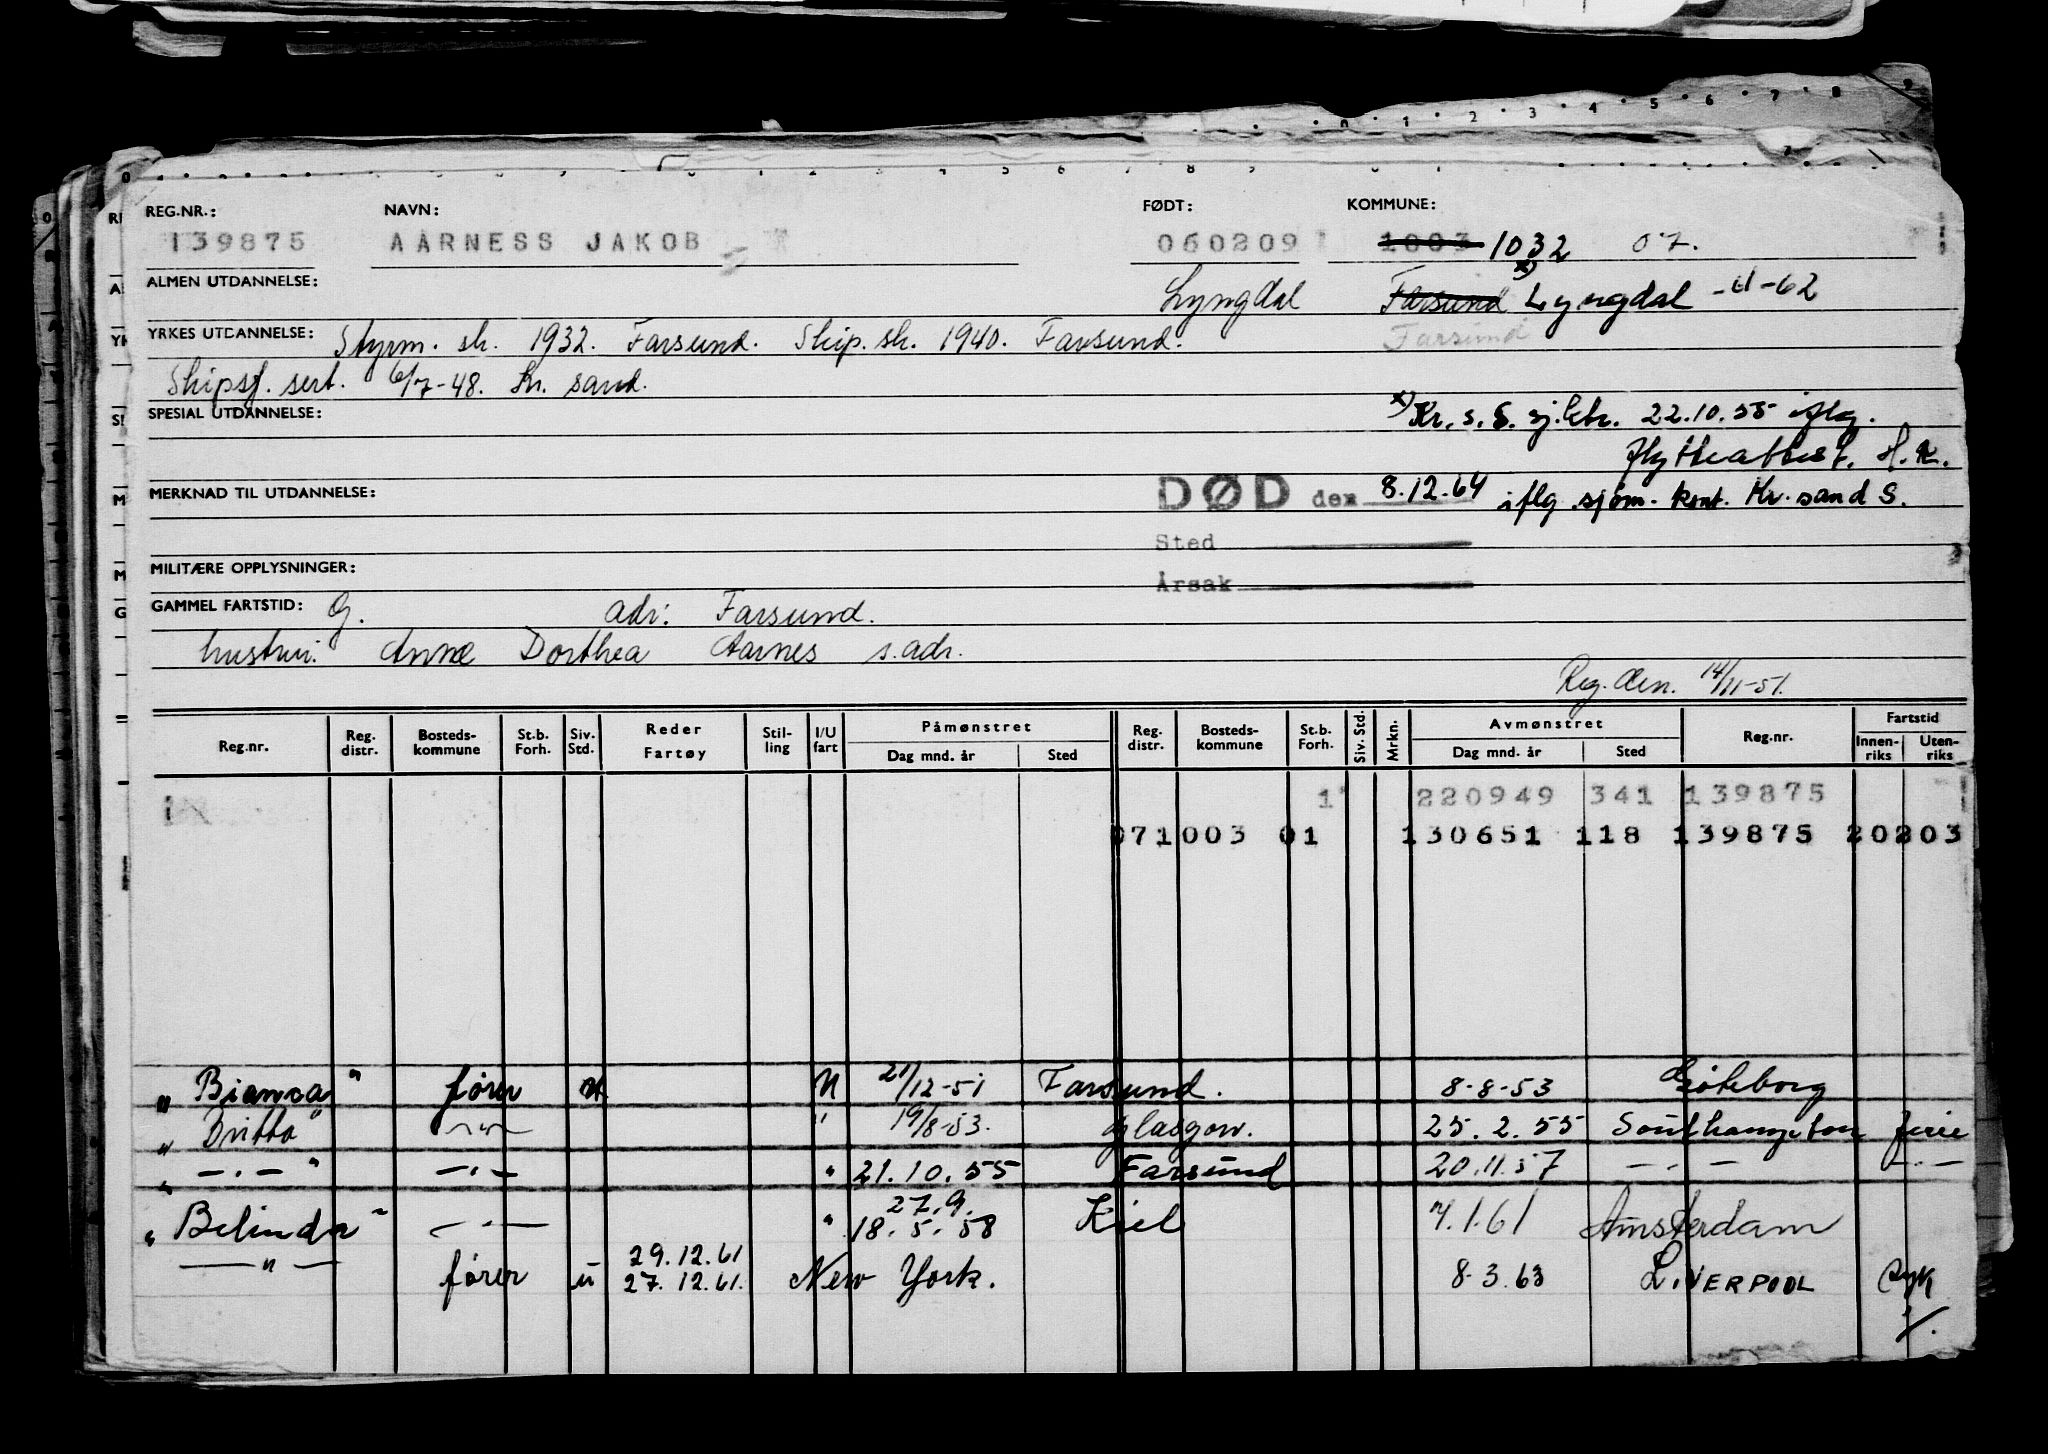 REG.NR.: NAVN: FØDT: KOMMUNE:
139875 AARNESS JAKOB 060209 1003 1032 07.
ALMEN UTDANNELSE: Lyngdal Farsund x) Lyngdal -62
YRKES UTDANNELSE: Styrm. sk. 1932. Farsund. Skip. sk. 1940. Farsund. Farsund
Skipsf. sert. 6/7-48. Kr. sand.
SPESIAL UTDANNELSE: x) Kr. s. S. sj.ktr. 22.10.55 iflg.
flytteattest. H.K.
MERKNAD TIL UTDANNELSE: DØD den 8.12.64 iflg. sjøm. kont. Kr. sand S.
Sted
MILITÆRE OPPLYSNINGER: Årsak
GAMMEL FARTSTID: G. adr: Farsund.
hustru: Anne Dorthea Aarnes s. adr.
Reg. den. 14/11-51.
Reg.nr. Reg. distr. Bosteds- kommune St.b. Forh. Siv. Std. Reder Fartøy Stil- ling I/U fart Påmønstret Dag mnd. år Sted Reg. distr. Bosteds- kommune St.b. Forh. Siv. Std. Mrkn. Avmønstret Dag mnd. år Sted Reg.nr. Fartstid Innen- riks Uten- riks
1 220949 341 139875
071003 01 130651 118 139875 20203
"Bianca" fører u 21/12-51 Farsund. 8-8-53 Göteborg
"Britta" —"— " 19/8-53. Glasgow. 25.2.55 Southampton ferie
"—.—" —.— " 21.10.55 Farsund 20.11.57 —.— —.—
27.9.
"Belinda" —.— " 18.5.58 Kiel 7.1.61 Amsterdam
29.12.61
—"— fører u 27.12.61. New York. 8.3.63 LIVERPOOL syk